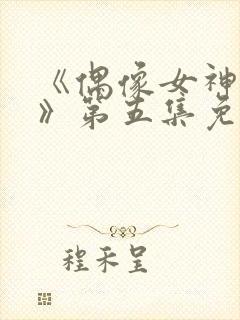 《偶像女神
》第五集免
程禾呈